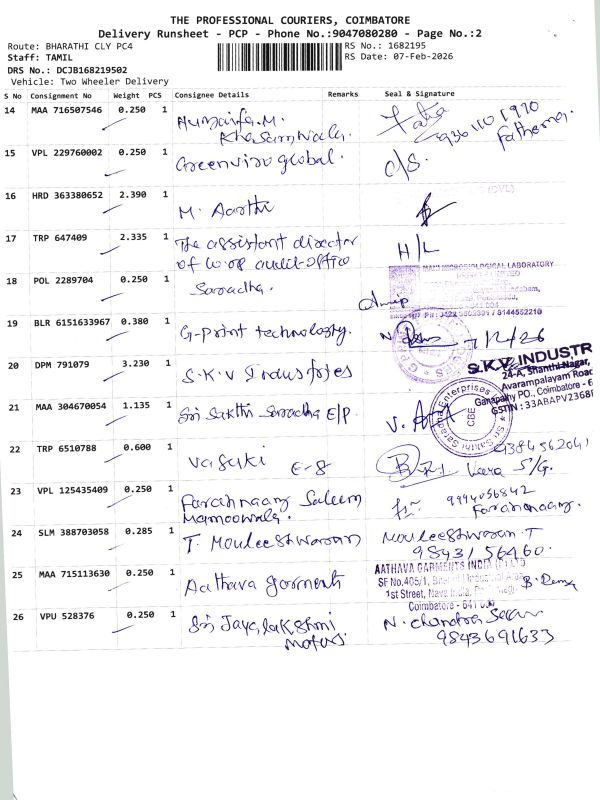 THE PROFESSIONAL COURIERS, COIMBATORE
Delivery Runsheet - PCP - Phone No.:9047080280 - Page No.:2
Route: BHARATHI CLY PC4
RS No.: 1682195
Staff: TAMIL
RS Date: 07-Feb-2026
DRS No.: DCJB168219502
Vehicle: Two Wheeler Delivery
S No Consignment No Weight PCS Consignee Details Remarks Seal & Signature
14 MAA 716507546 0.250 1 M.
Fathema
15 VPL 229760002 0.250 1 Greenviro global. C/S.
16 HRD 363380652 2.390 1 M. Aarthi
17 TRP 647409 2.335 1 The assistant director H/L
of co.op audit-office
18 POL 2289704 0.250 1 Saradha.
MICROBIOLOGICAL LABORATORY
19 BLR 6151633967 0.380 1 G-Print technology. 7/2/26
20 DPM 791079 3.230 1 S.K.V Industries
S.K.V. INDUSTR
24-A, Shanthi Nagar,
Avarampalayam Road
Ganapathy PO., Coimbatore - 6
GSTIN : 33ABAPV2368
21 MAA 304670054 1.135 1 Sri Sakthi Saradha E/P.
Sri Sakthi Saradha Enterprises
CBE
22 TRP 6510788 0.600 1 Vasuki E-8
9384562041
S/G.
23 VPL 125435409 0.250 1 Farahnaaz Saleem 9994056842
Mamoowala. Farahnaaz.
24 SLM 388703058 0.285 1 T. Mouleeshwaran Mouleeshwaran.T
98431 56460.
25 MAA 715113630 0.250 1 Aathava garments
AATHAVA GARMENTS INDIA (P) LTD
SF No.405/1,
1st Street, Nava India,
Coimbatore - 641
26 VPU 528376 0.250 1 Sri Jayalakshmi N. Chandra
Motors. 9843691633